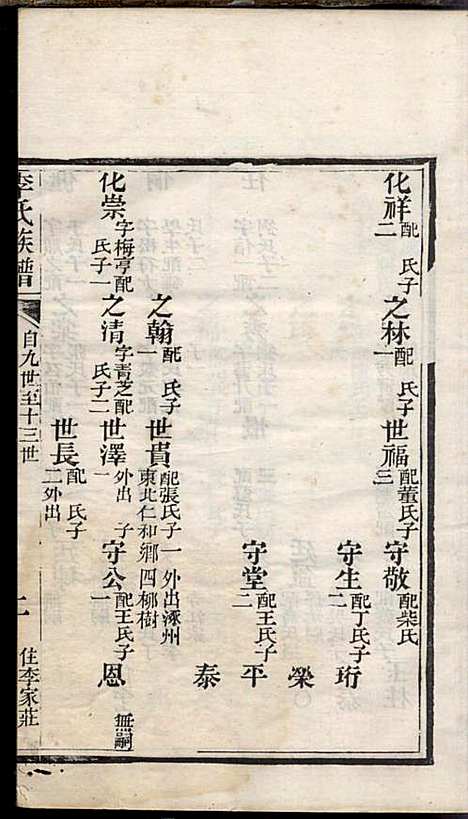 化祥 配 氏子二 之林 配 氏子一 世福 配董氏子三 守敬 配柴氏
守生 配丁氏子二 珩
榮
守堂 配王氏子二 平
泰
之翰 配 氏子一 世貴 配張氏子一 外出涿州東北仁和鄉四柳樹
化崇 字梅亭配 氏子一 之清 字青芝配 氏子二 世澤 外出 子一 守公 配王氏子一 恩 無嗣
世長 配 氏子二 外出
李氏族譜 自九世至十三世 二 住李家莊